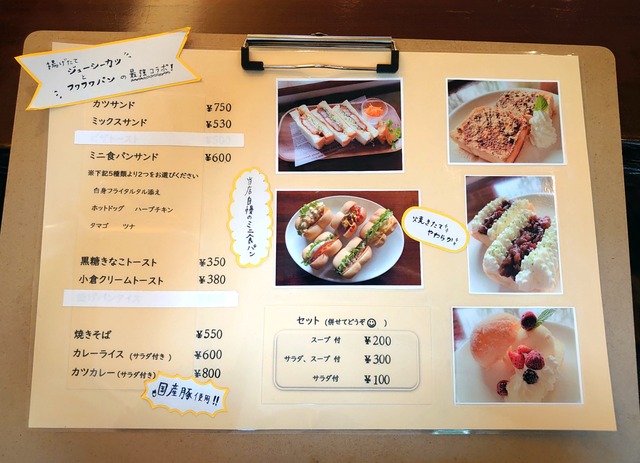 揚げたて
ジューシーカツ
と
フワフワパンの最強コラボ！
カツサンド ¥750
ミックスサンド ¥530
ミニ食パンサンド ¥600
※下記5種類より2つをお選びください
白身フライタルタル添え
ホットドッグ ハーブチキン
タマゴ ツナ
黒糖きなこトースト ¥350
小倉クリームトースト ¥380
焼きそば ¥550
カレーライス (サラダ付き) ¥600
カツカレー (サラダ付き) ¥800
国産豚使用!!
当店自慢のミニ食パン
焼きたて
やわらか!
セット (併せてどうぞ☺)
スープ 付 ¥200
サラダ、スープ 付 ¥300
サラダ付 ¥100